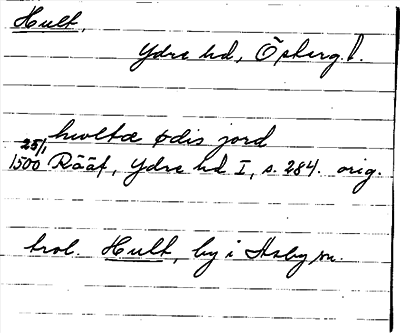 Hult,
Ydre hd, Österg. l.
hwltæ ødis jord
25/1
1500 Rääf, Ydre hd I, s. 284. orig.
trol. Hult, by i Asby sn.